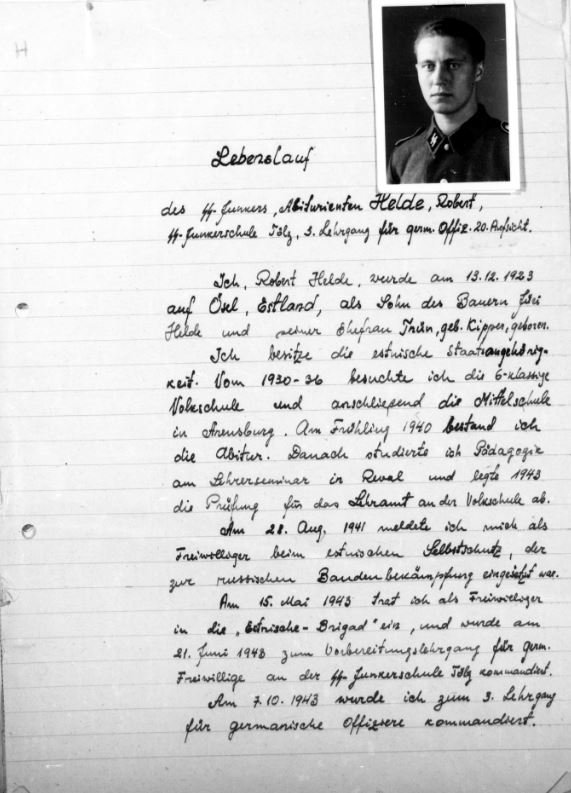 H
Lebenslauf
des SS-Junkers, Abiturienten Helde, Robert,
SS-Junkerschule Tölz, 3. Lehrgang für germ. Offiz. 20. Aufsicht.
Ich, Robert Helde, wurde am 13.12.1923
auf Ösel, Estland, als Sohn des Bauern Jüri
Helde und seiner Ehefrau Triin, geb. Kipper, geboren.
Ich besitze die estnische Staatsangehörig-
keit. Vom 1930-36 besuchte ich die 6-klassige
Volkschule und anschliessend die Mittelschule
in Arensburg. Am Frühling 1940 bestand ich
die Abitur. Danach studierte ich Pädagogie
am Lehrerseminar in Reval und legte 1943
die Prüfung für das Lehramt an der Volkschule ab.
Am 28. Aug. 1941 meldete ich mich als
Freiwilliger beim estnischen Selbstschutz, der
zur russischen Bandenbekämpfung eingesetzt war.
Am 15. Mai 1943 trat ich als Freiwilliger
in die "Estnische-Brigad" ein, und wurde am
21. Juni 1943 zum Vorbereitungslehrgang für germ.
Freiwillige an der SS-Junkerschule Tölz kommandiert.
Am 7.10.1943 wurde ich zum 3. Lehrgang
für germanische Offiziere kommandiert.